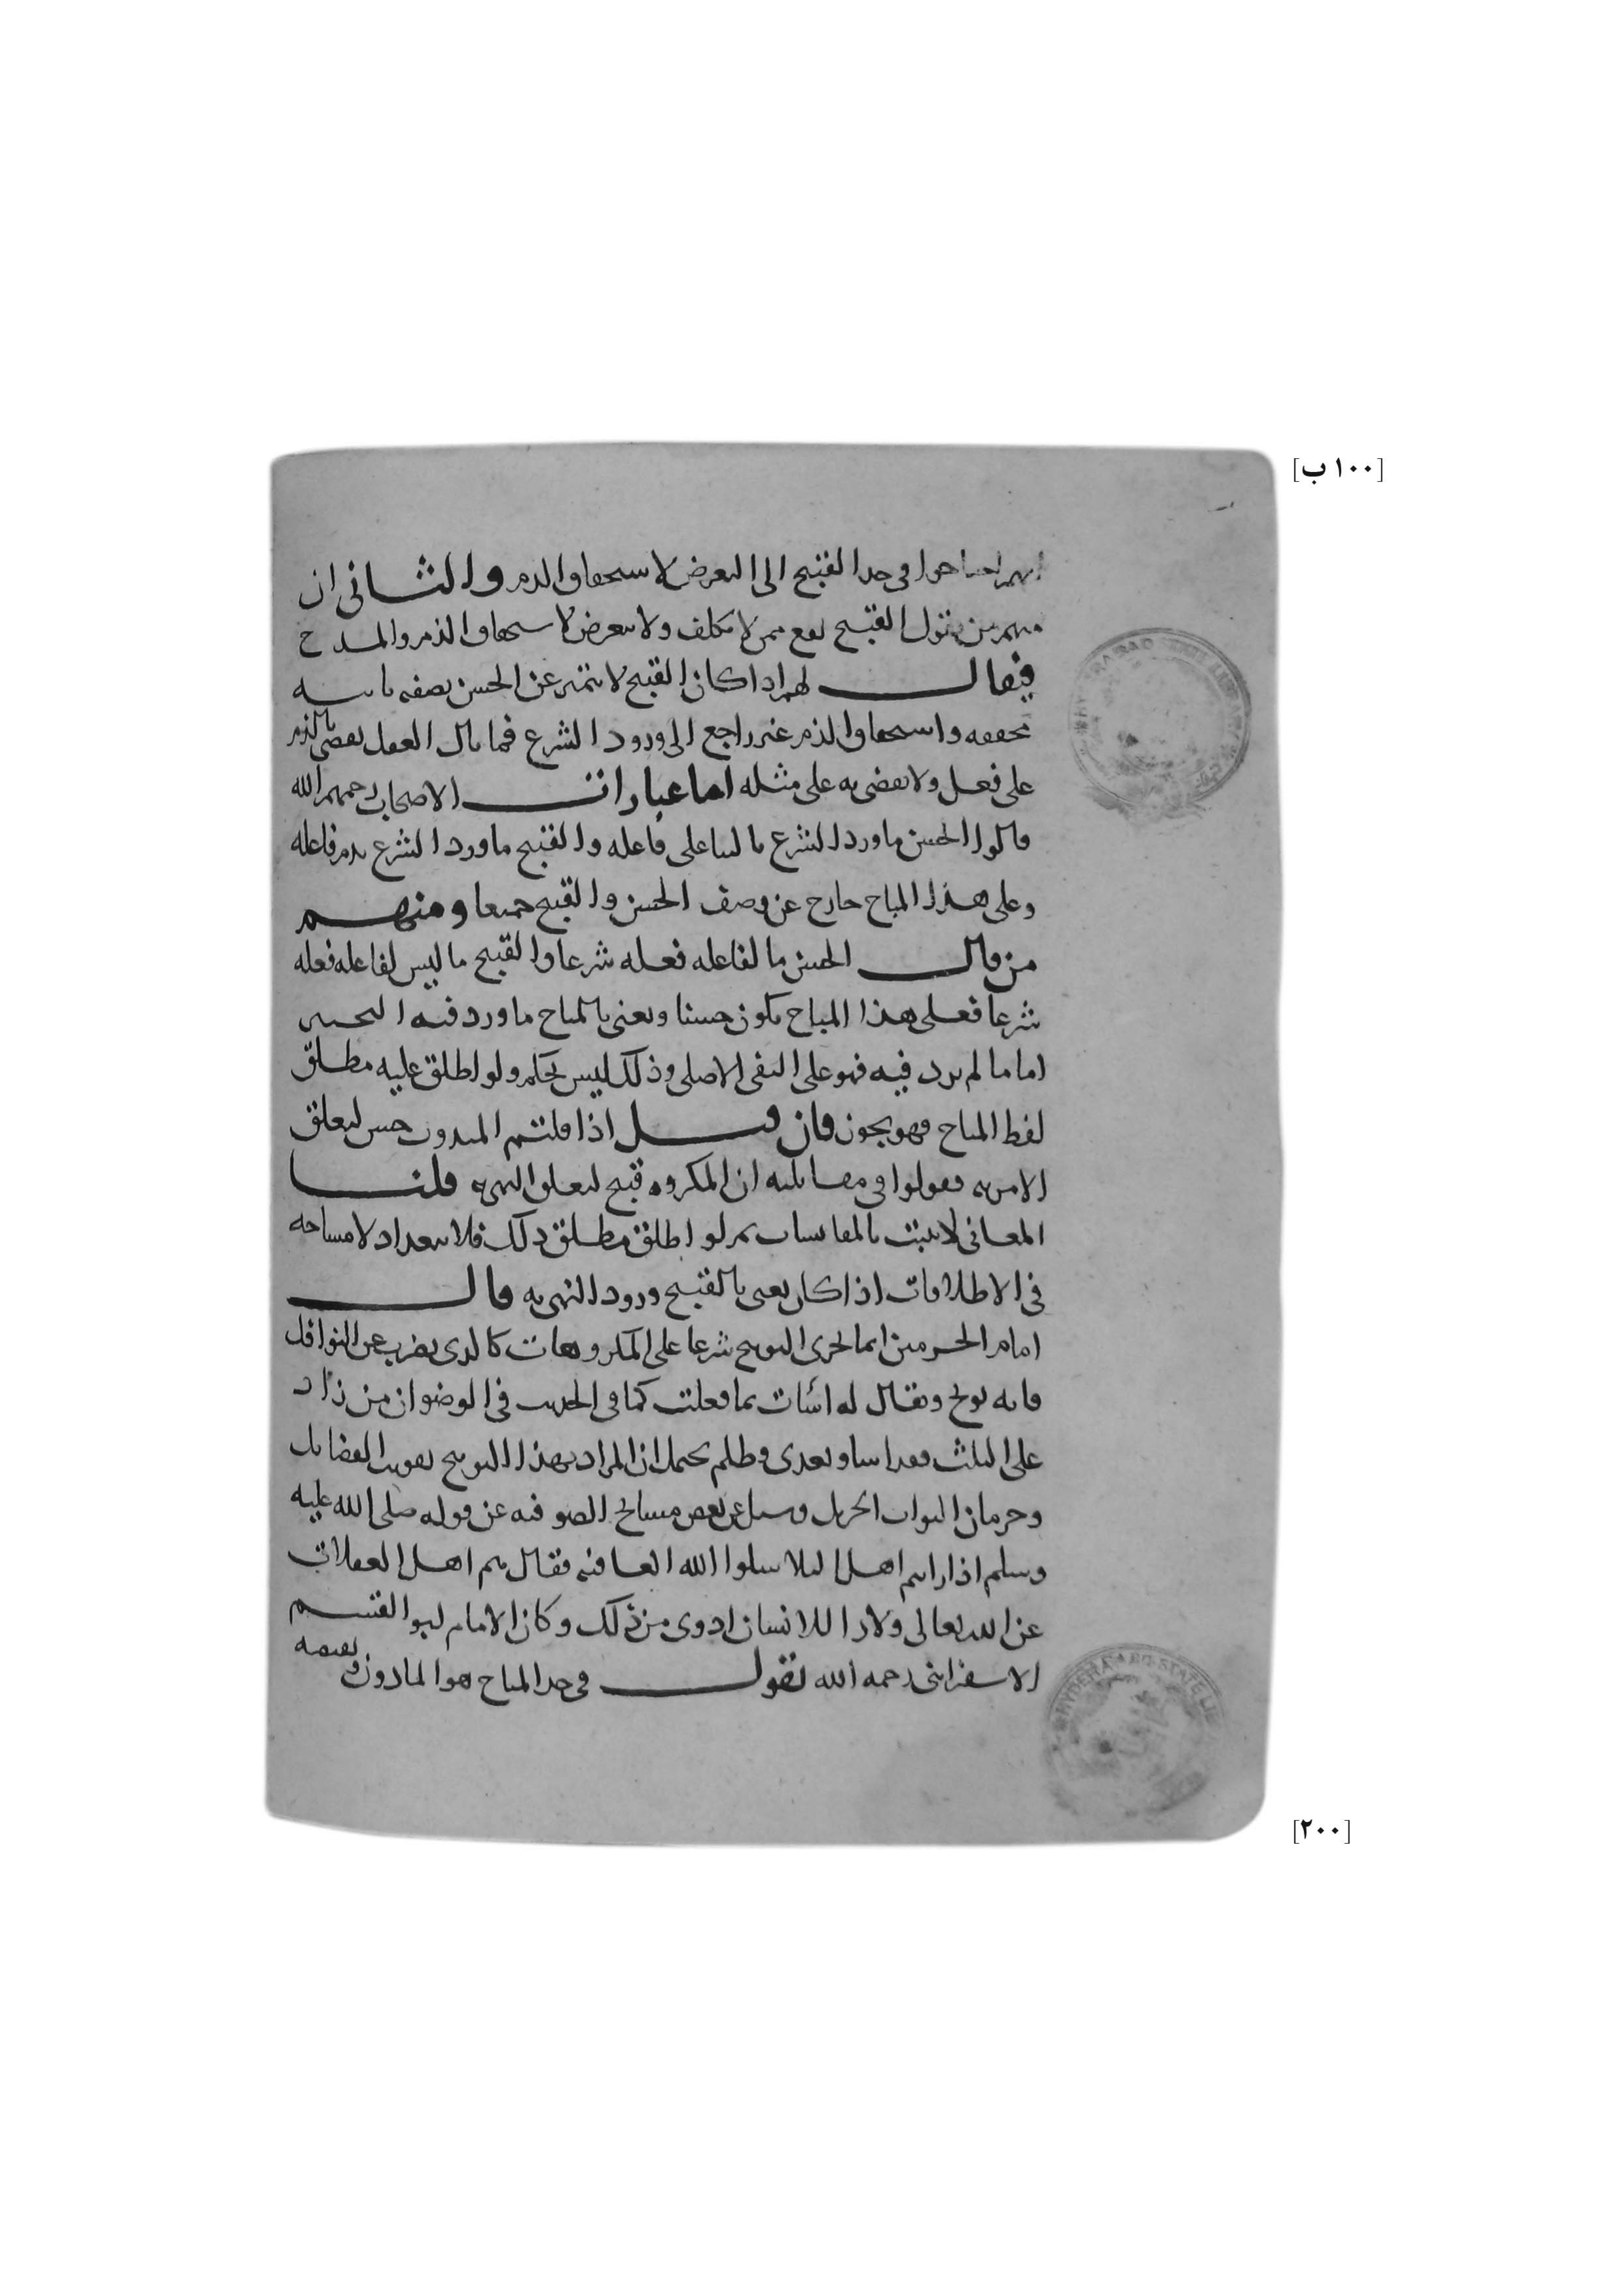 [١٠٠ ب]
انهم احتاجوا في حد القبيح الى التعرض لاستحقاق الذم والثاني ان
منهم من يقول القبيح يقع ممن لا يكلف ولا يتعرض لاستحقاق الذم والمدح
فيقال لهم اذا كان القبيح لا يتميز عن الحسن بصفة نابتة
تحققه واستحقاق الذم غير راجع الى ورود الشرع فما بال العقل يقضي بالذم
على فعل ولا يقضي به على مثله اما عبارات الاصحاب رحمهم الله
قالوا الحسن ما ورد الشرع بالثنا على فاعله والقبيح ما ورد الشرع بذم فاعله
وعلى هذا المباح خارج عن وصف الحسن والقبيح جميعا ومنهم
من قال الحسن ما لفاعله فعله شرعا والقبيح ما ليس لفاعله فعله
شرعا فعلى هذا المباح يكون حسنا ويعني بالمباح ما ورد فيه التخيير
اما ما لم يرد فيه فهو على النفي الاصلي وذلك ليس بحكم ولو اطلق عليه مطلق
لفظ المباح فهو تجوز فان قيل اذا قلتم المندوب حسن لتعلق
الامر به فقولوا في مقابلته ان المكروه قبيح لتعلق النهي به قلنا
المعاني لا تثبت بالمقايسات ثم لو اطلق مطلق ذلك فلا يبعد اذ لا مشاحة
في الاطلاقات اذا كان يعني بالقبيح ورود النهي به قال
امام الحرمين انما يجري التوبيخ شرعا على المكروهات كالذي يضرب عن النوافل
فانه يوبخ ويقال له اسات بما فعلت كما في الحديث في الوضوان من زاد
على الثلث فقد اسا وتعدى وظلم يحتمل ان المراد بهذا التوبيخ تفويت الفضايل
وحرمان الثواب الجزيل وسيل عن بعض مشايخ الصوفية عن قوله صلى الله عليه
وسلم اذا رايتم اهل البلا سلوا الله العافية فقال هم اهل الغفلات
عن الله تعالى ولا دا للانسان ادوى من ذلك وكان الامام ابو القسم
الاسفرايني رحمه الله يقول في حد المباح هو الماذون
[٢٠٠]